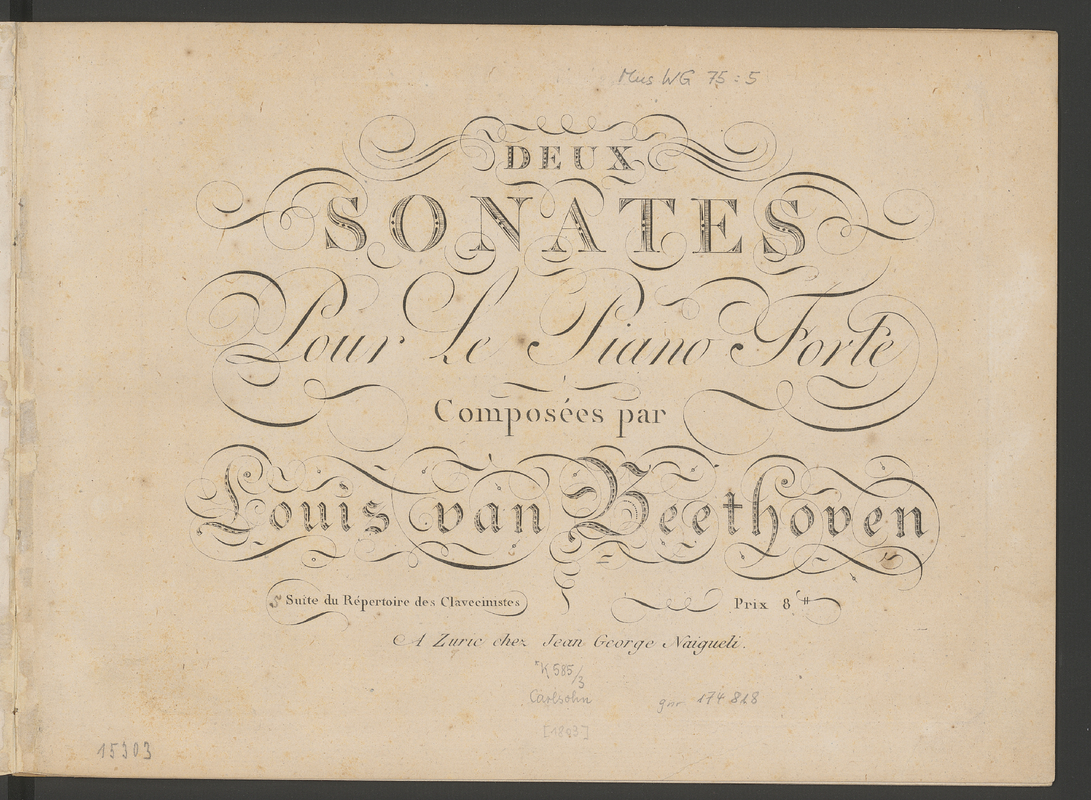 Mus WG 75 : 5
DEUX
SONATES
Pour Le Piano Forte
Composées par
Louis van Beethoven
5 Suite du Répertoire des Clavecinistes
Prix 8 ₶
A Zuric chez Jean George Naigueli.
*K 585/3
Carlsohn
gnr 174 818
[1803]
15303